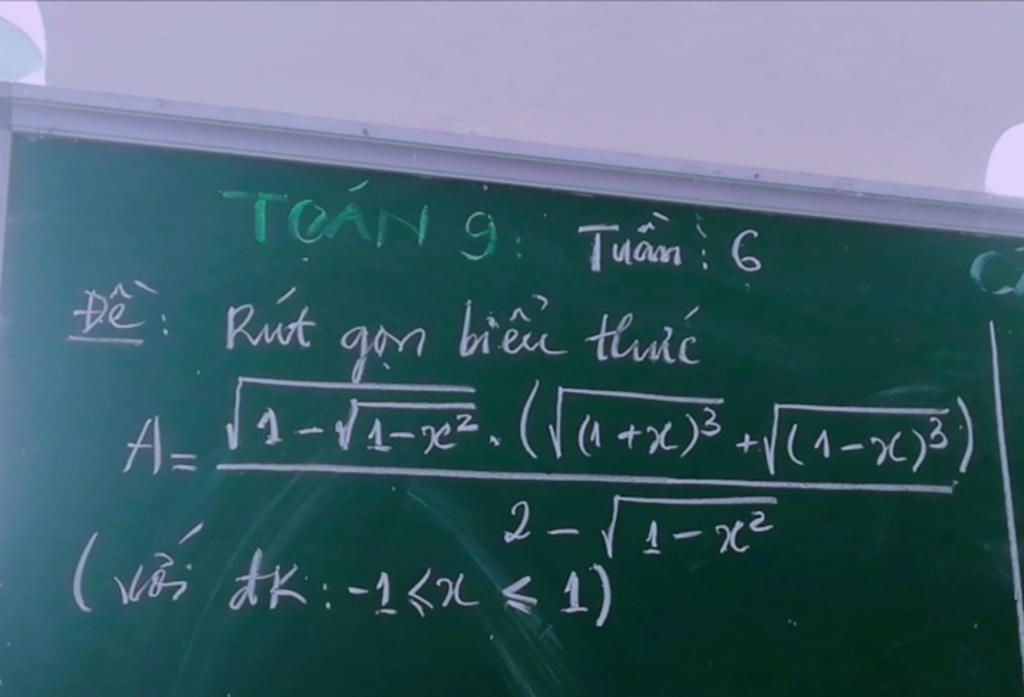 TOÁN 9: Tuần: 6
Đề: Rút gọn biểu thức
A = \frac{\sqrt{1-\sqrt{1-x^2}} \cdot (\sqrt{(1+x)^3} + \sqrt{(1-x)^3})}{2-\sqrt{1-x^2}}
(với đk: -1 ≤ x ≤ 1)